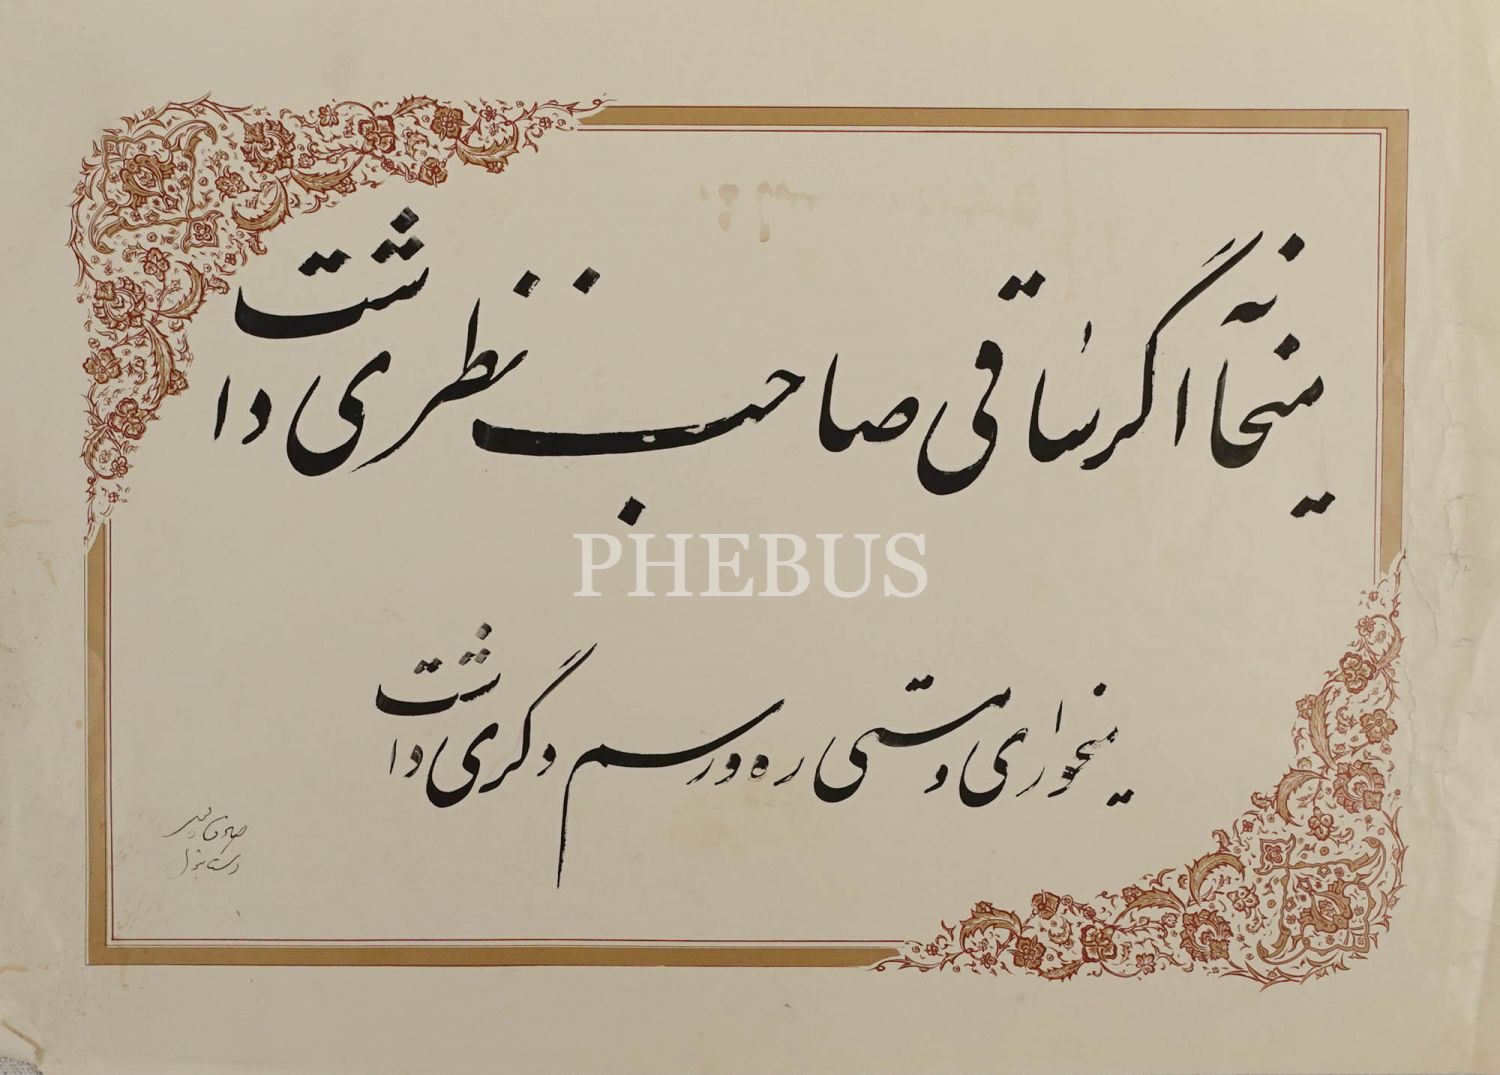 میخانه اگر ساقی صاحب نظری داشت
PHEBUS
میخواری و مستی ره و رسم دگری داشت